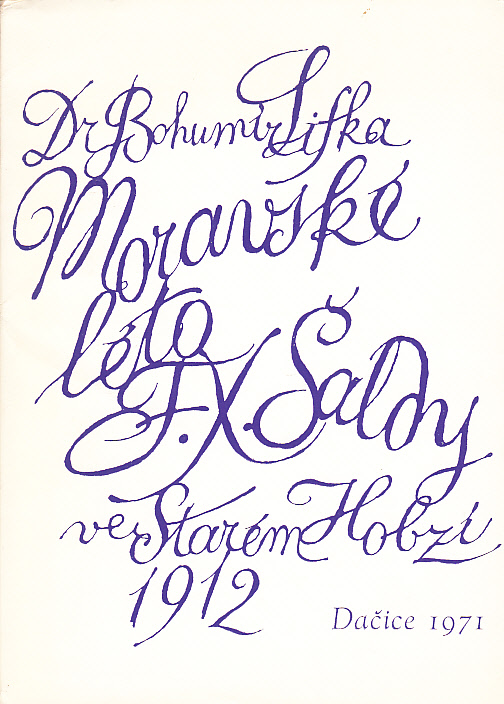 Dr Bohumír Lifka
Moravské
léto
F. X. Šaldy
ve Starém Hobzí
1912
Dačice 1971